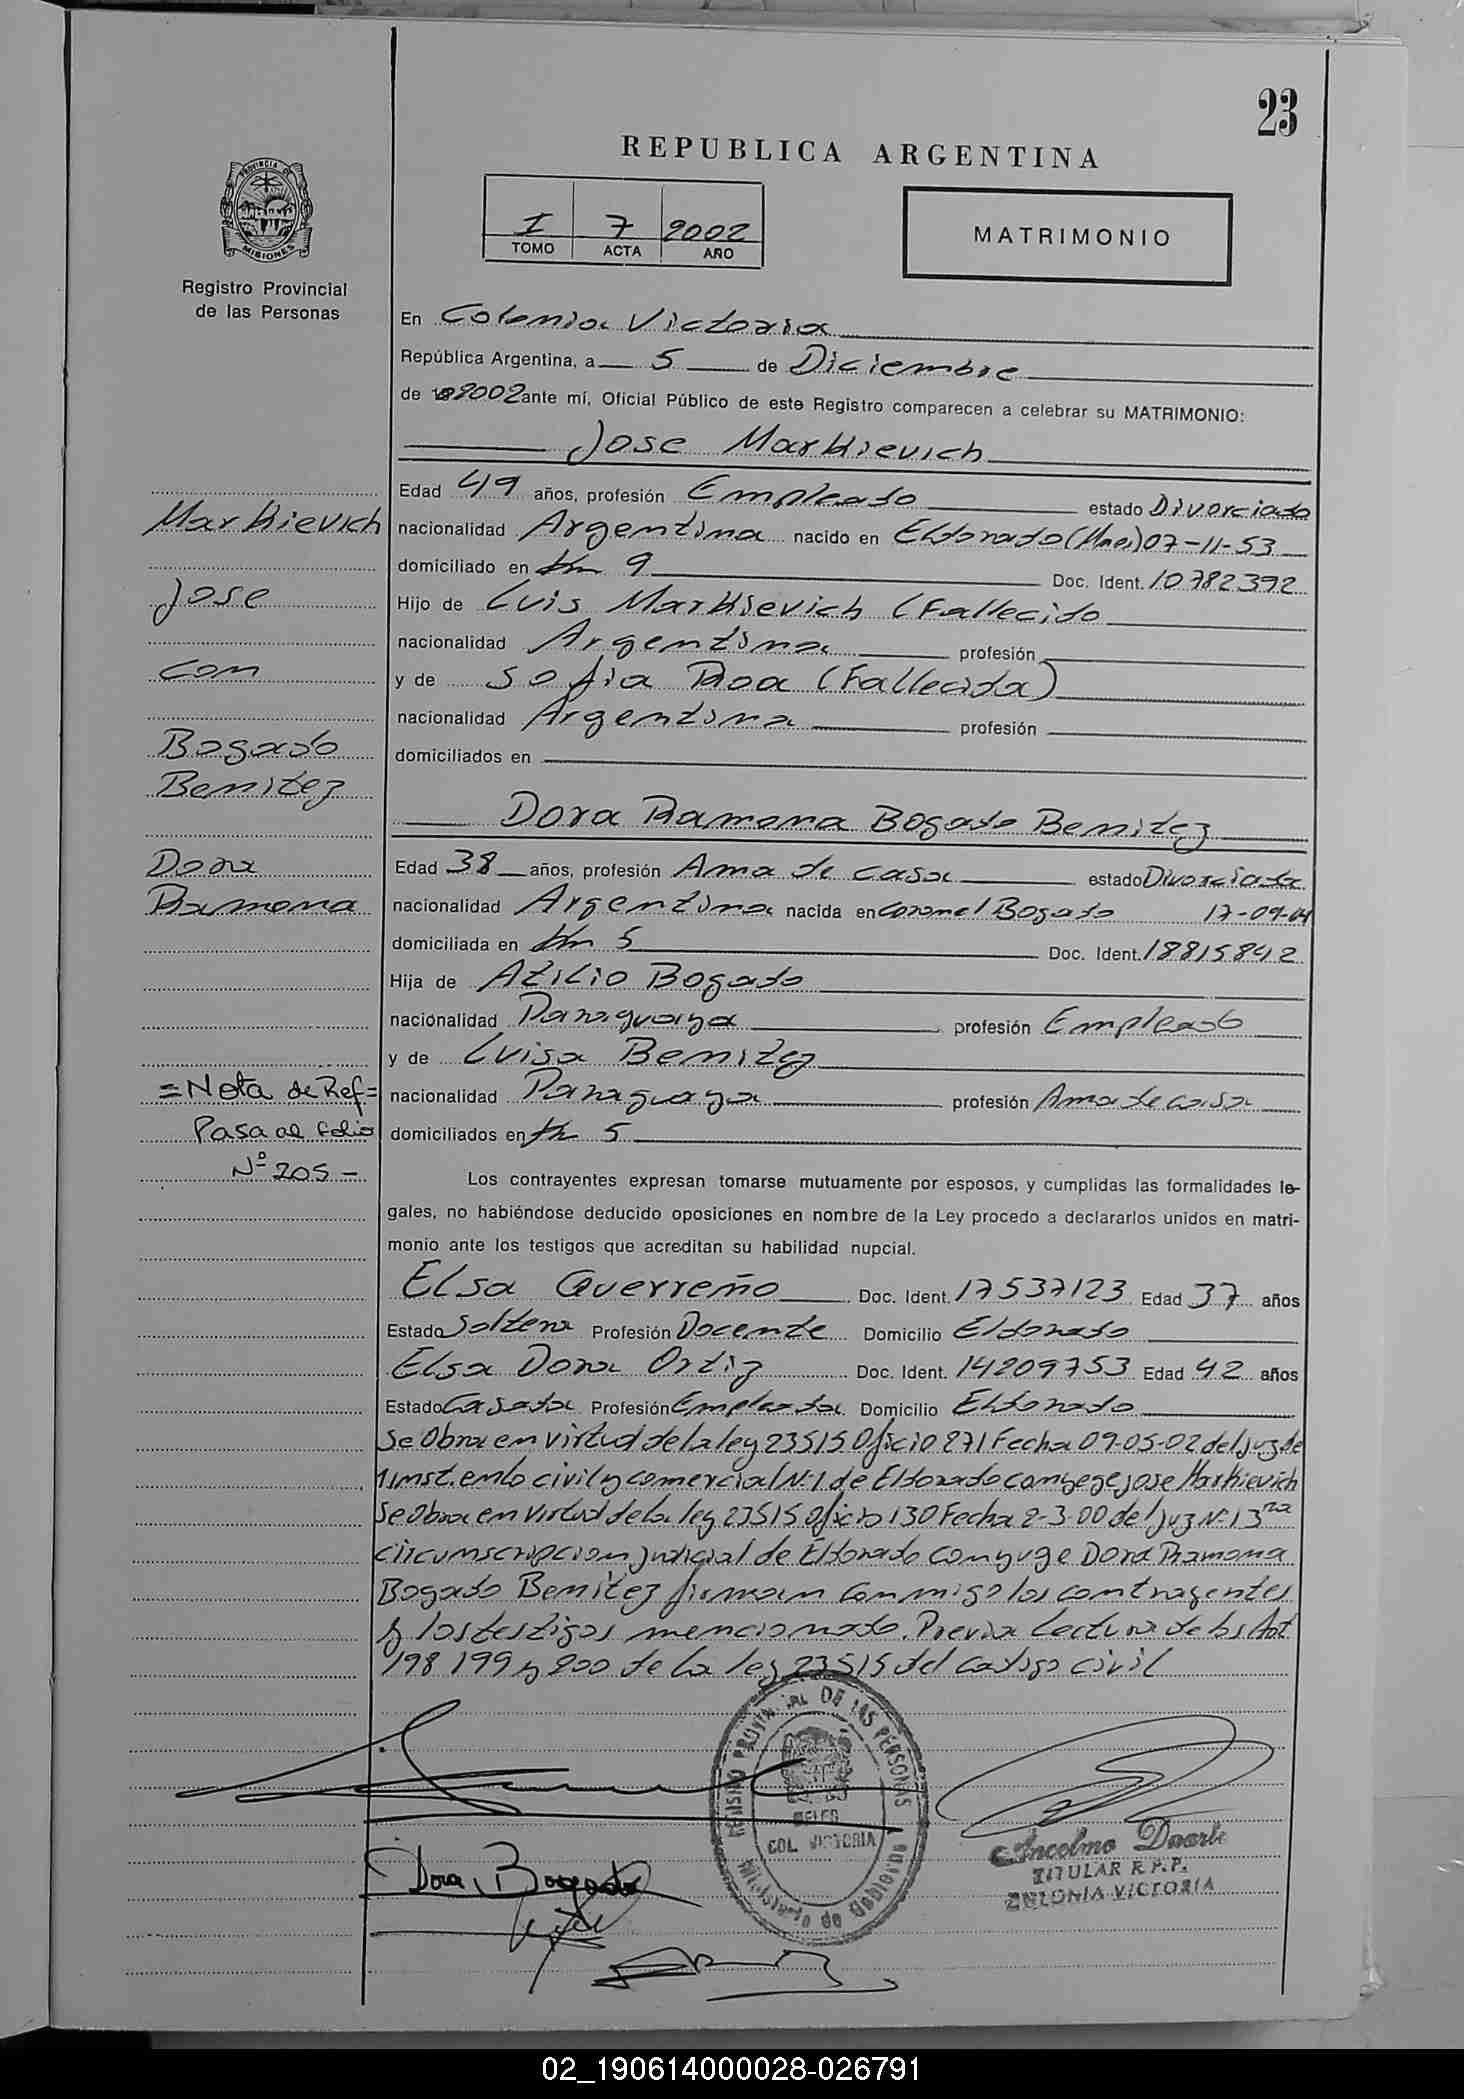 23
REPUBLICA ARGENTINA
PROVINCIA DE
MISIONES
Registro Provincial
de las Personas
I 7 2002
TOMO ACTA AÑO
MATRIMONIO
En Colonia Victoria
República Argentina, a 5 de Diciembre
de 2002 ante mí, Oficial Público de este Registro comparecen a celebrar su MATRIMONIO:
Jose Markievich
Edad 49 años, profesión Empleado estado Divorciado
nacionalidad Argentina nacido en Eldorado (Mnes) 07-11-53
domiciliado en Km 9 Doc. Ident. 10782392
Hijo de Luis Markievich (Fallecido
nacionalidad Argentina profesión
y de Sofia Roa (Fallecida)
nacionalidad Argentina profesión
domiciliados en
Dora Ramona Bogado Benitez
Edad 38 años, profesión Ama de casa estado Divorciada
nacionalidad Argentina nacida en Coronel Bogado 17-09-64
domiciliada en Km 5 Doc. Ident. 18815842
Hija de Atilio Bogado
nacionalidad Paraguaya profesión Empleado
y de Luisa Benitez
nacionalidad Paraguaya profesión Ama de casa
domiciliados en Km 5
Markievich
Jose
con
Bogado
Benitez
Dora
Ramona
=Nota de Ref=
Pasa al folio
Nº 205-
Los contrayentes expresan tomarse mutuamente por esposos, y cumplidas las formalidades le-
gales, no habiéndose deducido oposiciones en nombre de la Ley procedo a declararlos unidos en matri-
monio ante los testigos que acreditan su habilidad nupcial.
Elsa Guerreño Doc. Ident. 17537123 Edad 37 años
Estado Soltera Profesión Docente Domicilio Eldorado
Elsa Dora Ortiz Doc. Ident. 14209753 Edad 42 años
Estado Casada Profesión Empleada Domicilio Eldorado
Se Obra en virtud de la ley 23515 Oficio 271 Fecha 09-05-02 del Juz de
1 inst. en lo civil y comercial Nº 1 de Eldorado conyege Jose Markievich
Se Obra en virtud de la ley 23515 Oficio 130 Fecha 2-3-00 del Juz Nº 1 3ra
circunscripcion Judicial de Eldorado conyuge Dora Ramona
Bogado Benitez firman conmigo los contrayentes
y los testigos mencionado. Previa lectura de los Art
198 199 y 200 de la ley 23515 del codigo civil
REGISTRO PROVINCIAL DE LAS PERSONAS
DELEG
COL VICTORIA
Ministerio de Gobierno
Dora Bogado
Ancelmo Duarte
TITULAR R.P.P.
COLONIA VICTORIA
02_190614000028-026791